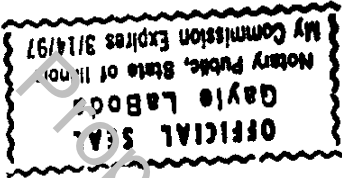 OFFICIAL SEAL
Gayle LaBoda
Notary Public, State of Illinois
My Commission Expires 3/14/97